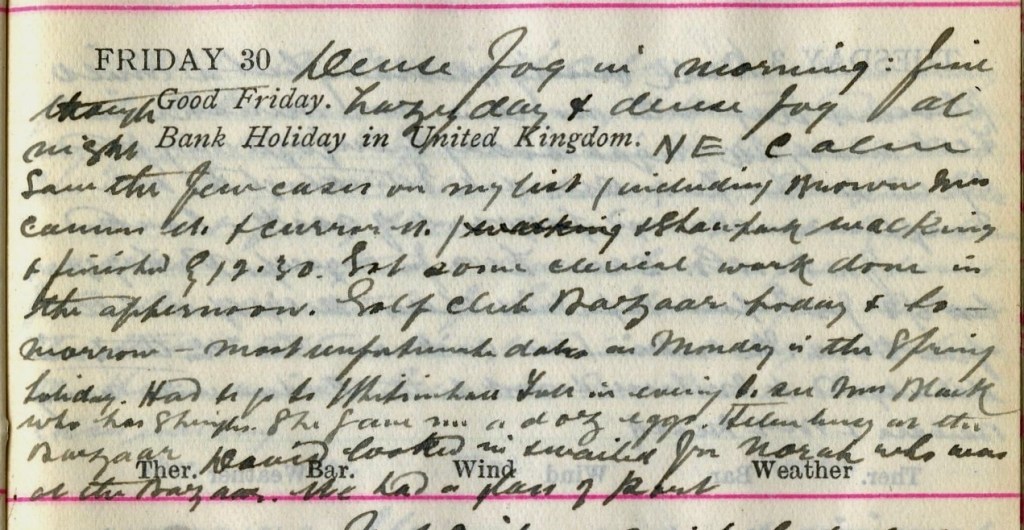 FRIDAY 30 Dense Fog in morning: fine
though Good Friday. hazy day & dense fog at
night Bank Holiday in United Kingdom. NE Calm
Saw the few cases on my list (including Brown Mrs
St. & Curror St. ) walking
& finished by 12.30. Got some clerical work done in
the afternoon. Golf Club Bazaar today & to-
morrow - most unfortunate dates as Monday is the Spring
holiday. Had to go to in evening to see Mrs Black
who has Shingles. She gave me a doz eggs. at the
Bazaar David looked in & waited for Norah who was
Ther. Bar. Wind Weather
at the Bazaar. We had a glass of Port